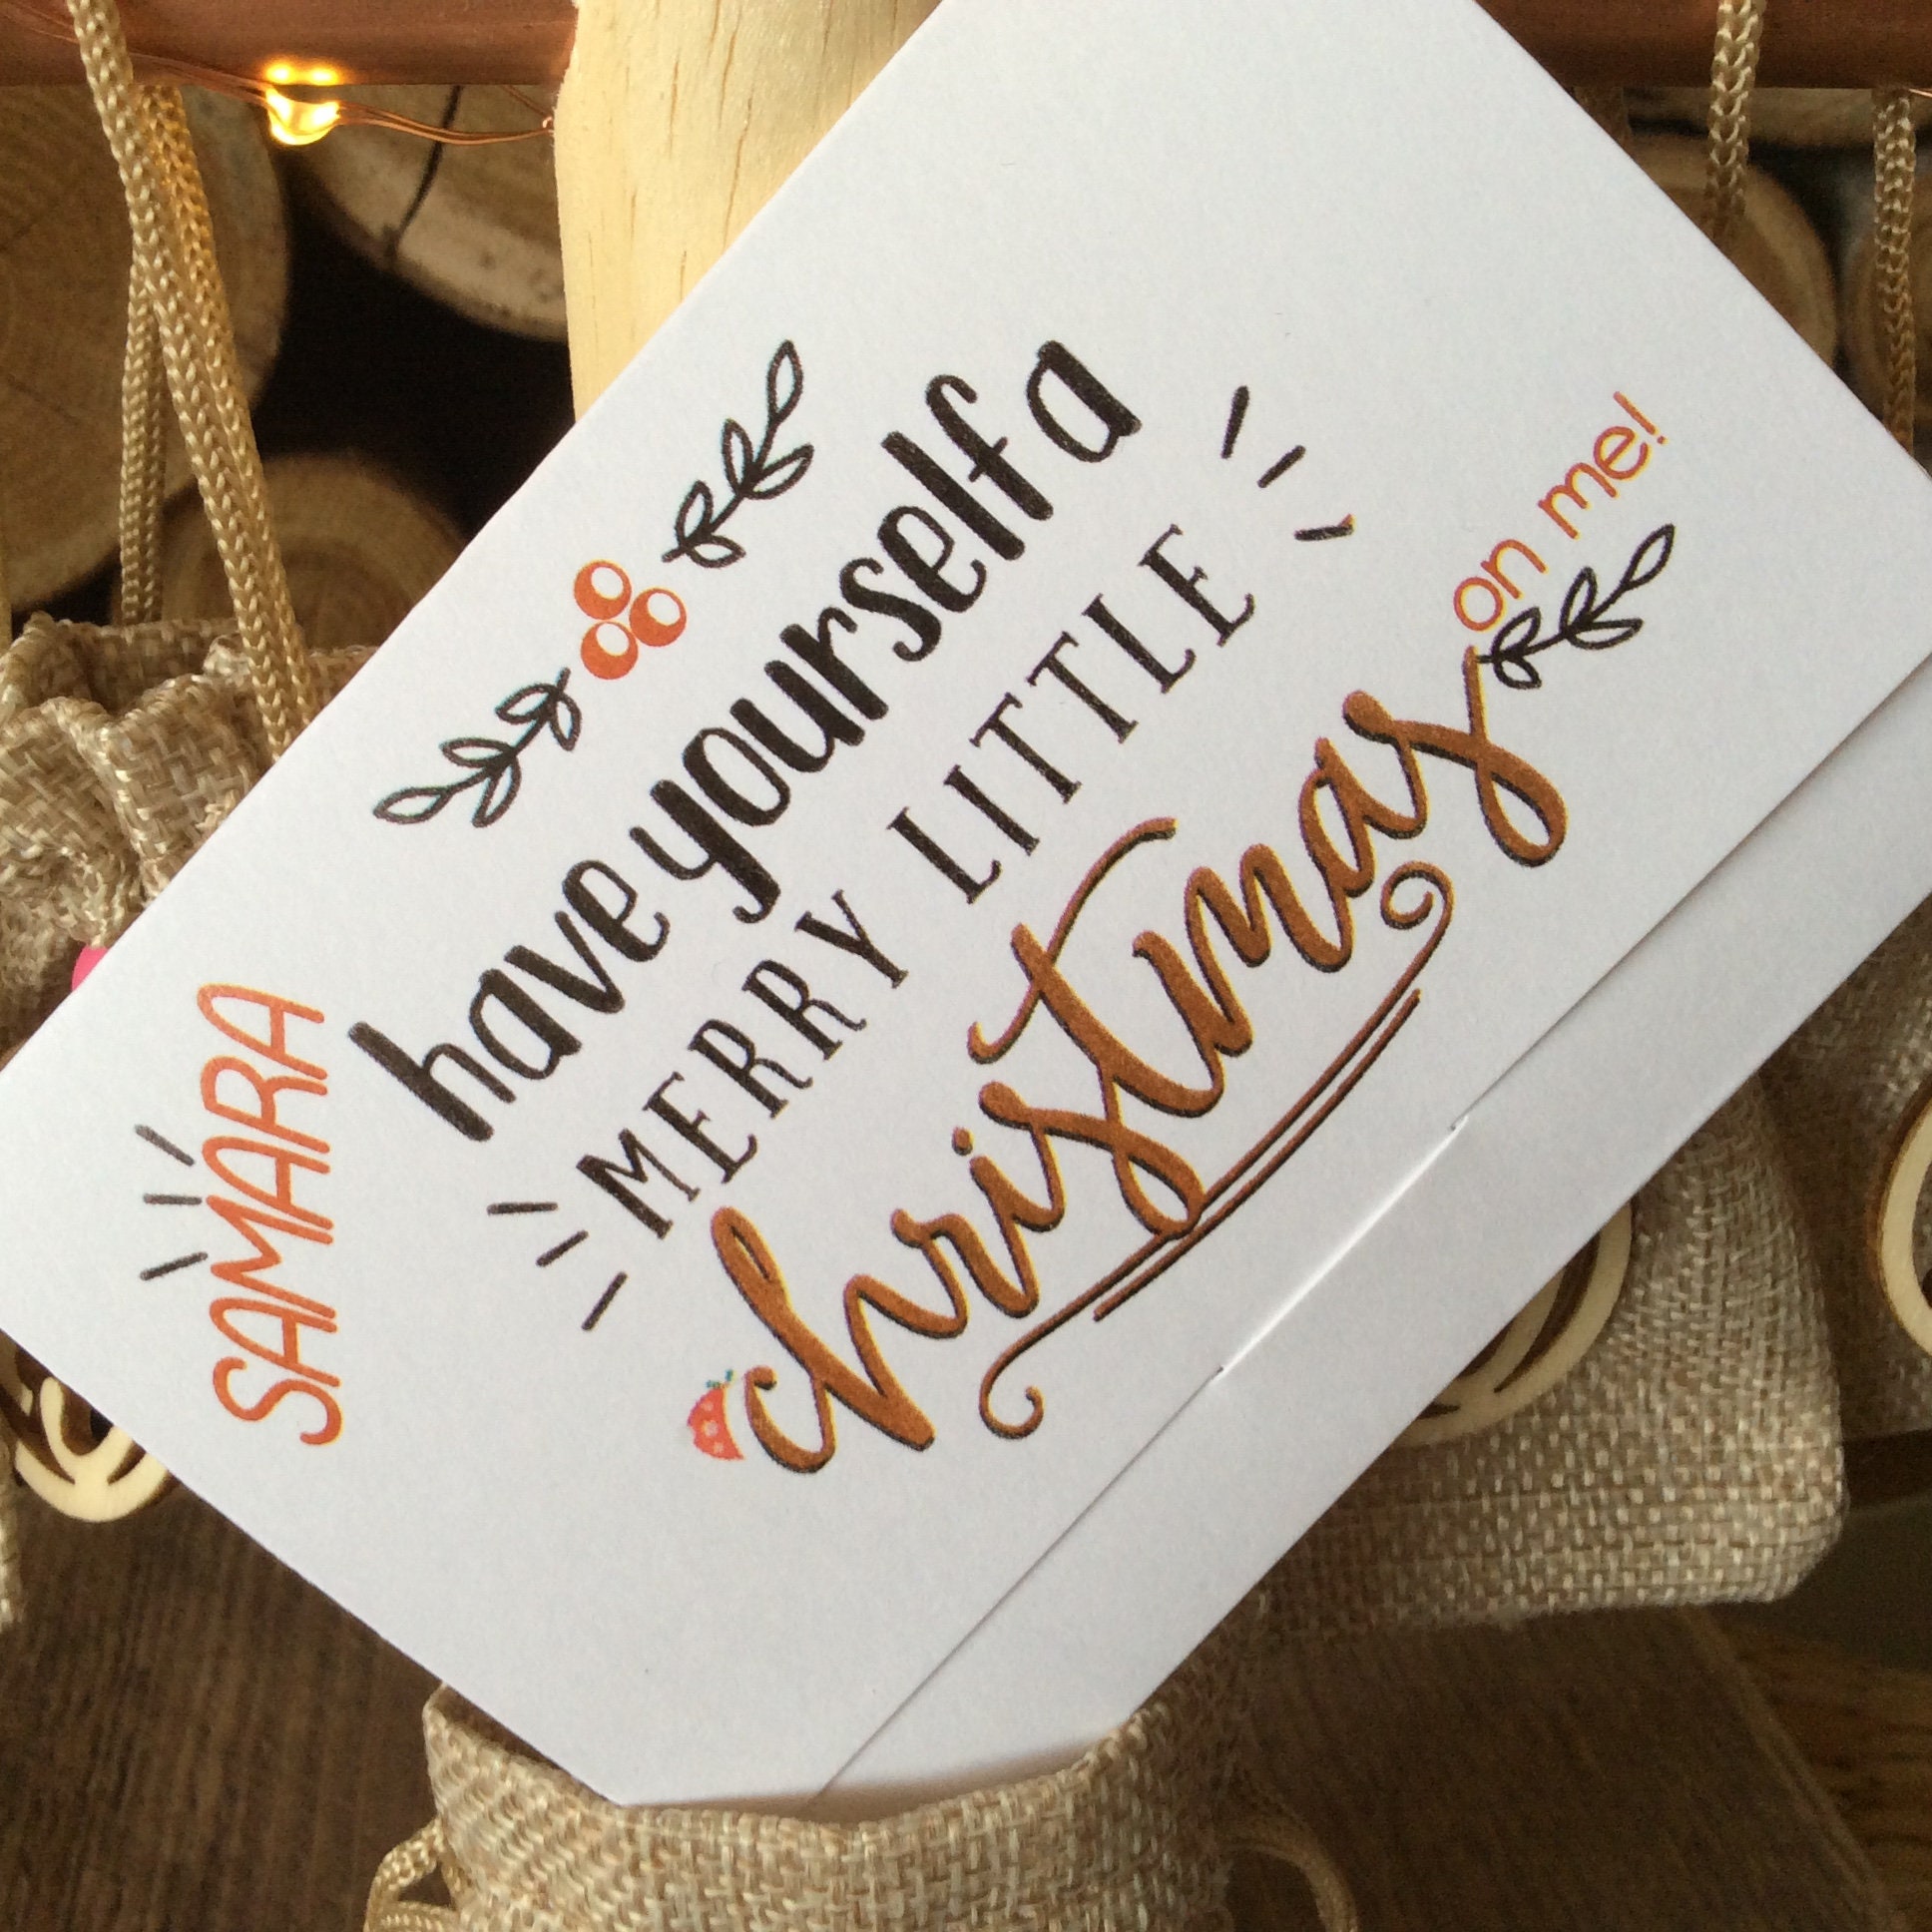 SAMARA
have yourself a
MERRY LITTLE
christmas
on me!